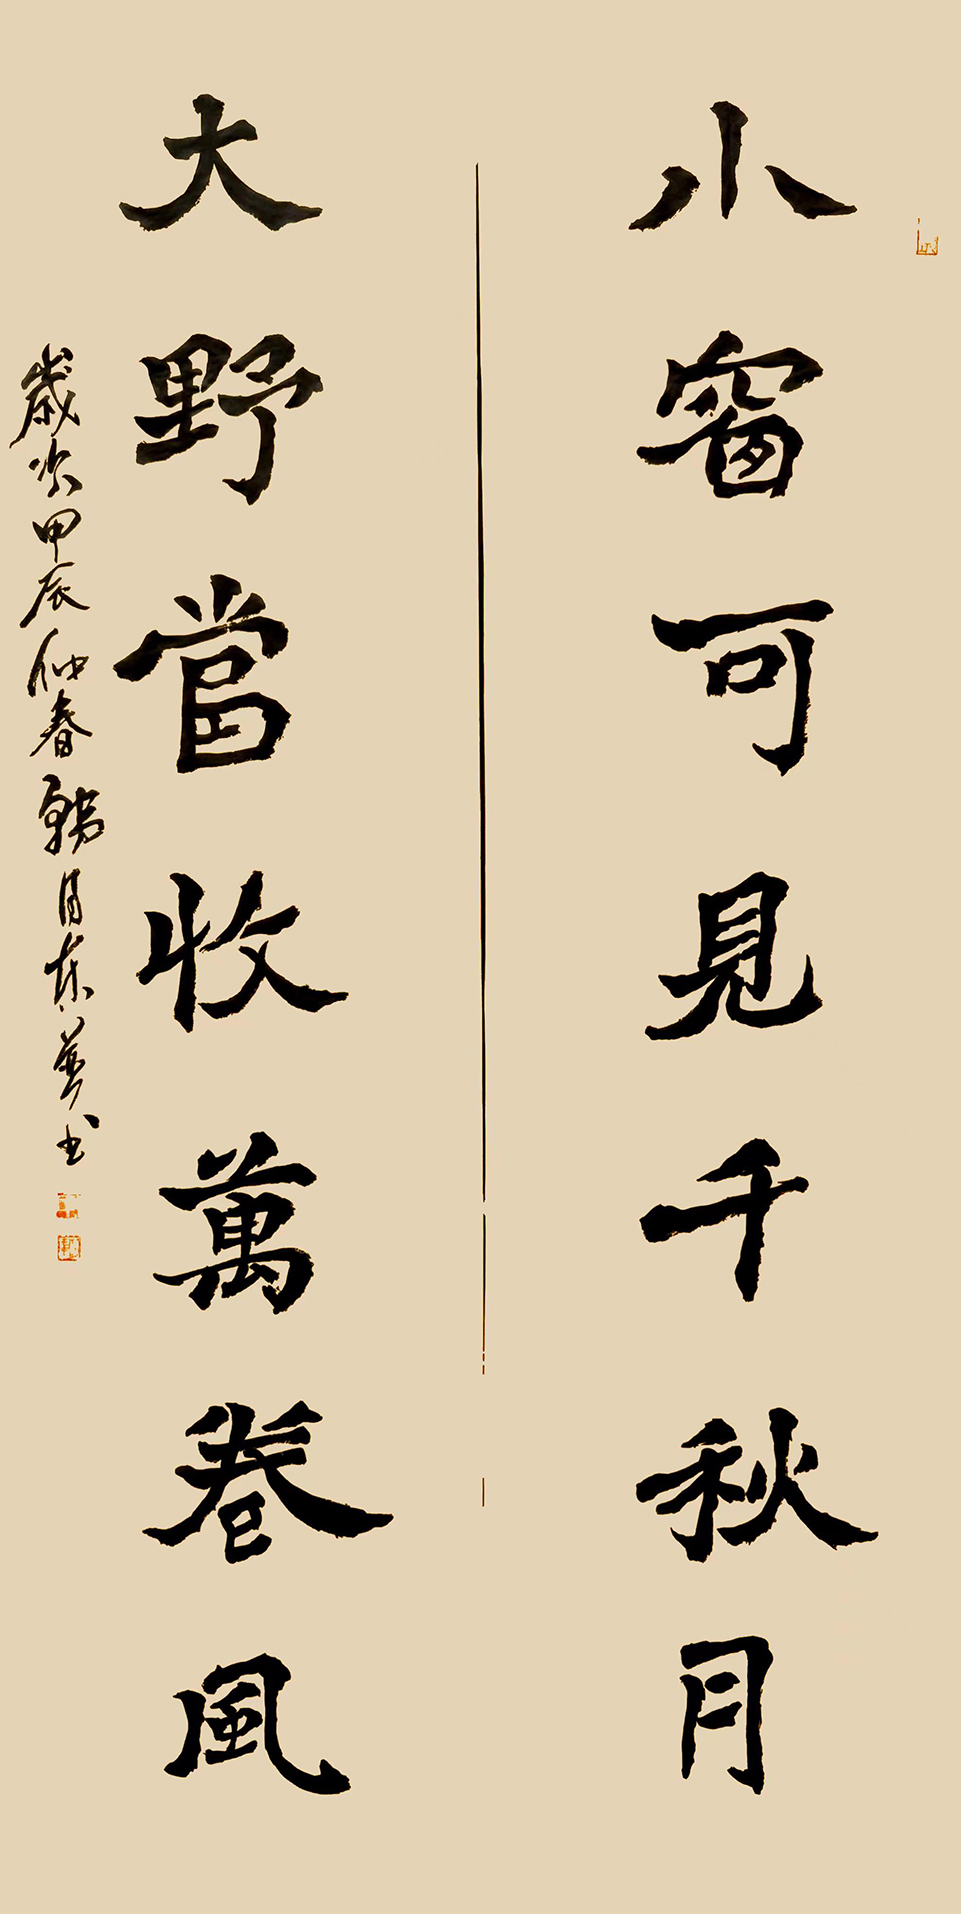 小窗可見千秋月
大野當收萬卷風
歲次甲辰仲春韓